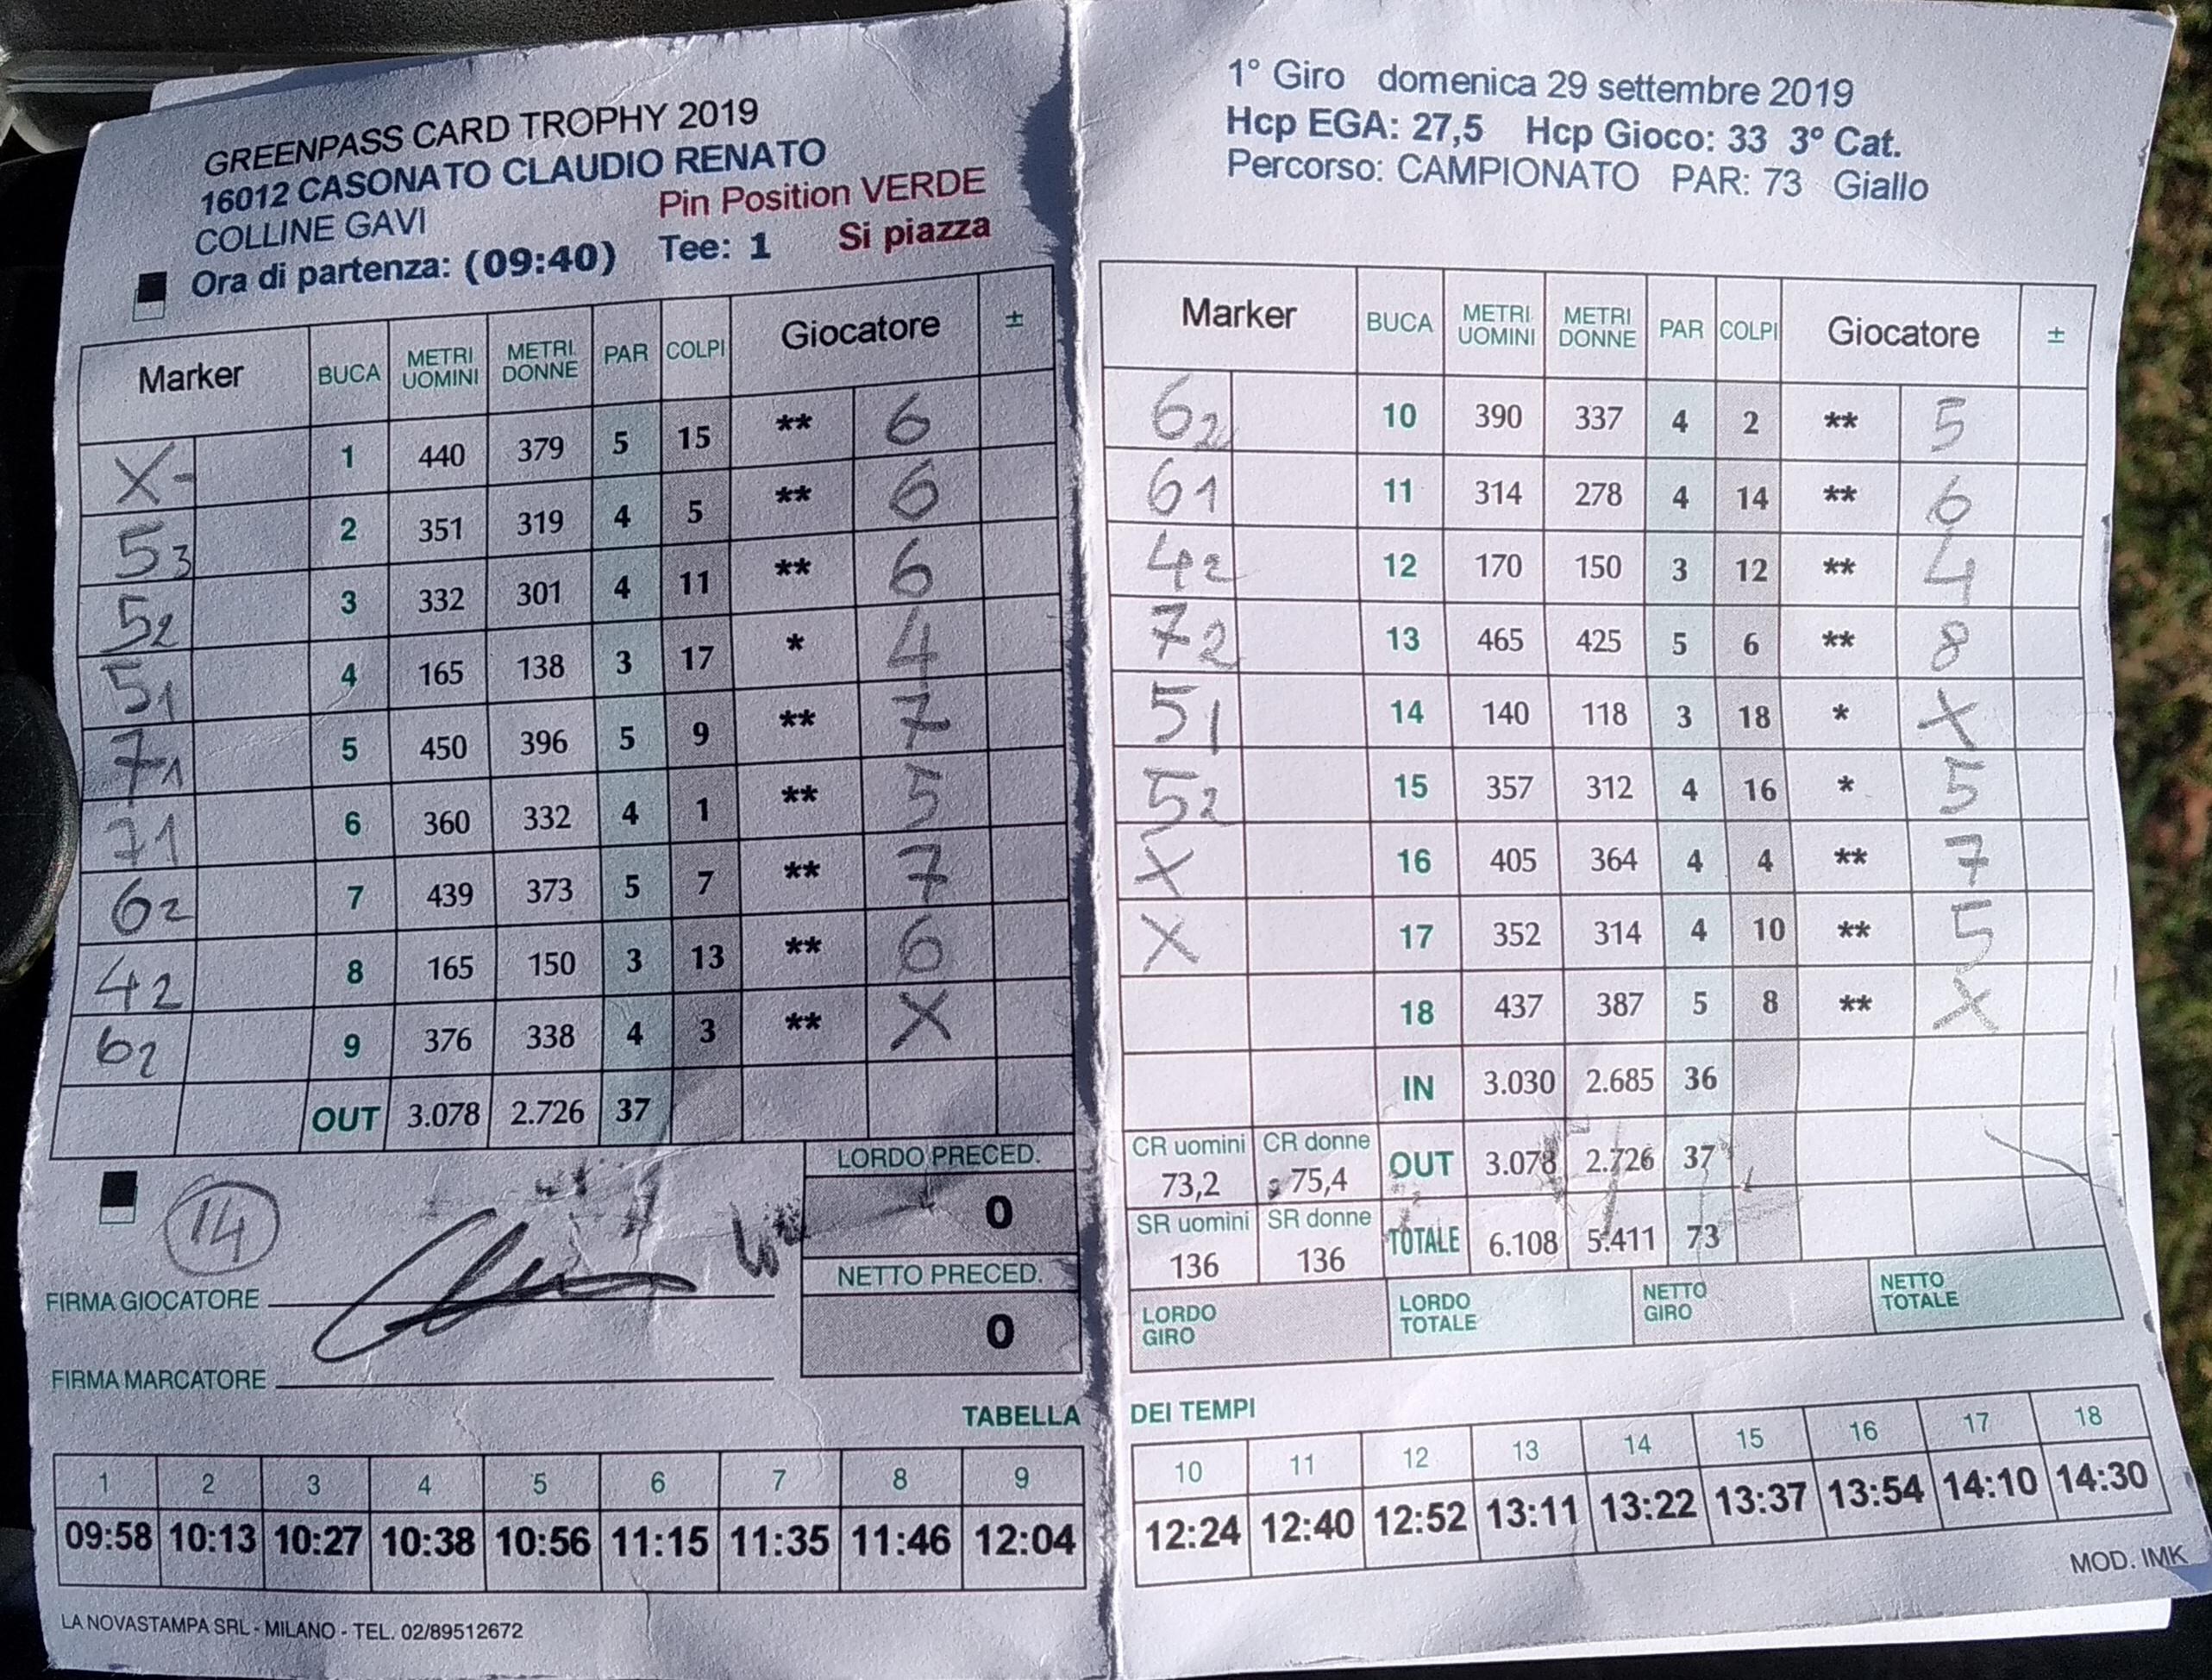 GREENPASS CARD TROPHY 2019
16012 CASONATO CLAUDIO RENATO
COLLINE GAVI Pin Position VERDE
Ora di partenza: (09:40) Tee: 1 Si piazza
Marker BUCA METRI UOMINI METRI DONNE PAR COLPI Giocatore ±
X - 1 440 379 5 15 ** 6
53 2 351 319 4 5 ** 6
52 3 332 301 4 11 ** 6
51 4 165 138 3 17 * 4
71 5 450 396 5 9 ** 7
71 6 360 332 4 1 ** 5
62 7 439 373 5 7 ** 7
42 8 165 150 3 13 ** 6
62 9 376 338 4 3 ** X
OUT 3.078 2.726 37
14
LORDO PRECED.
0
NETTO PRECED.
0
FIRMA GIOCATORE
FIRMA MARCATORE
1° Giro domenica 29 settembre 2019
Hcp EGA: 27,5 Hcp Gioco: 33 3° Cat.
Percorso: CAMPIONATO PAR: 73 Giallo
Marker BUCA METRI UOMINI METRI DONNE PAR COLPI Giocatore ±
62 10 390 337 4 2 ** 5
61 11 314 278 4 14 ** 6
42 12 170 150 3 12 ** 4
72 13 465 425 5 6 ** 8
51 14 140 118 3 18 * X
52 15 357 312 4 16 * 5
X 16 405 364 4 4 ** 7
X 17 352 314 4 10 ** 5
18 437 387 5 8 ** X
IN 3.030 2.685 36
CR uomini CR donne OUT 3.078 2.726 37
73,2 75,4
SR uomini SR donne TOTALE 6.108 5.411 73
136 136
LORDO GIRO LORDO TOTALE NETTO GIRO NETTO TOTALE
TABELLA DEI TEMPI
1 2 3 4 5 6 7 8 9 10 11 12 13 14 15 16 17 18
09:58 10:13 10:27 10:38 10:56 11:15 11:35 11:46 12:04 12:24 12:40 12:52 13:11 13:22 13:37 13:54 14:10 14:30
LA NOVASTAMPA SRL - MILANO - TEL. 02/89512672
MOD. IMK